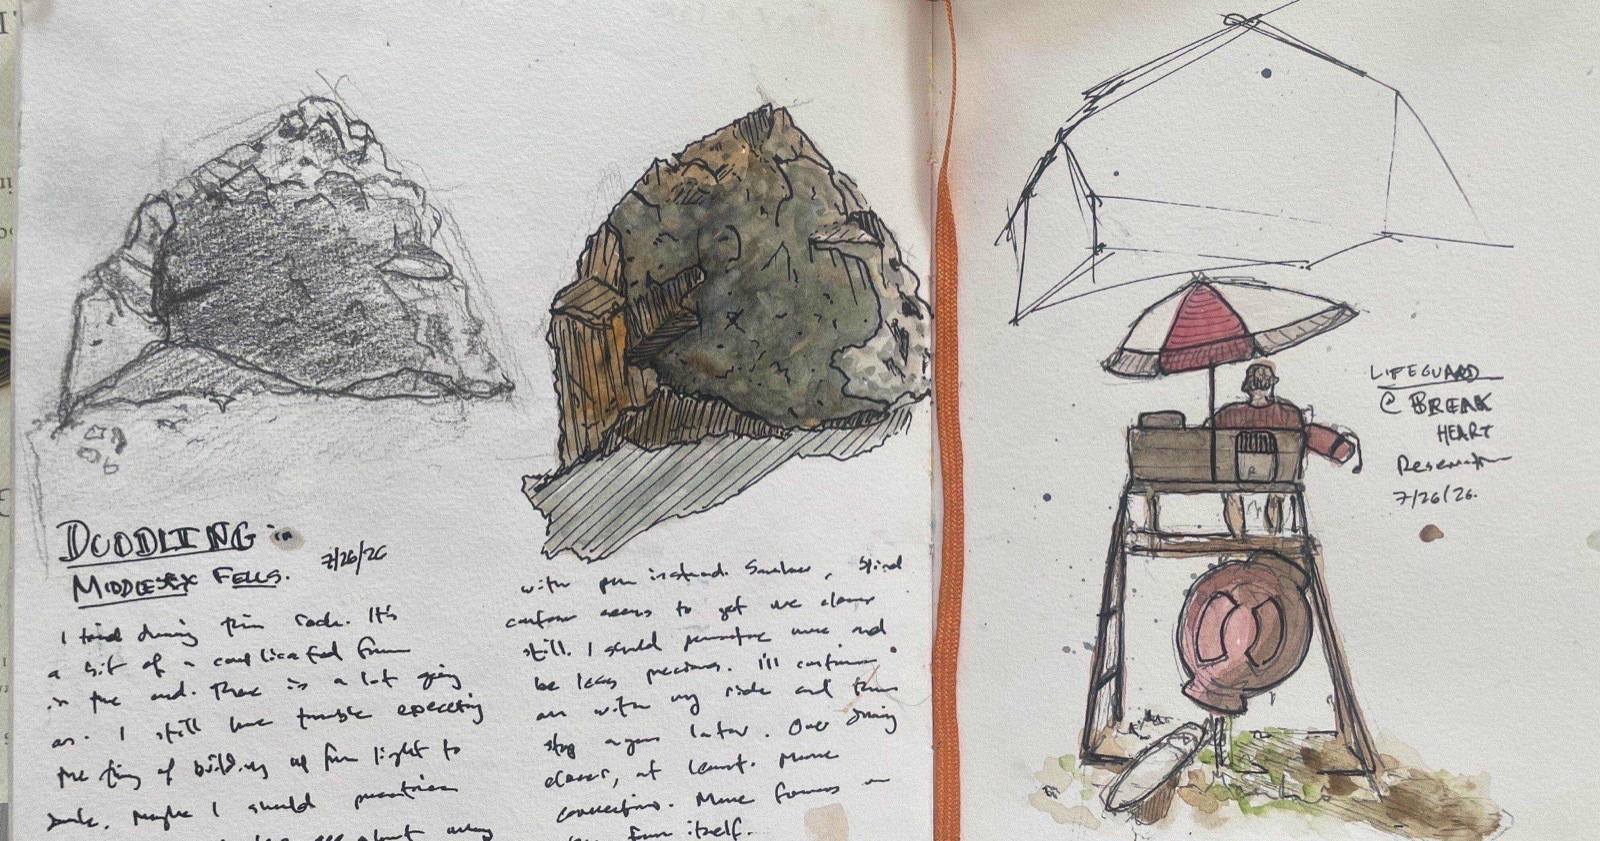 DOODLING in
MIDDLESEX FELLS. 7/26/26
I tried drawing this rock. It's
a bit of a complicated form
in the end. There is a lot going
on. I still have trouble
the thing of building up from light to
dark. Maybe I should practice
about using
with pen instead. Smaller,
contour seems to get me closer
still. I should practice more and
be less precious. I'll continue
on with my ride and then
stop again later. Over doing
closer, at least. More
connections. More focus on
form itself.
LIFEGUARD
@ BREAK
HEART
Reservation
7/26/26.